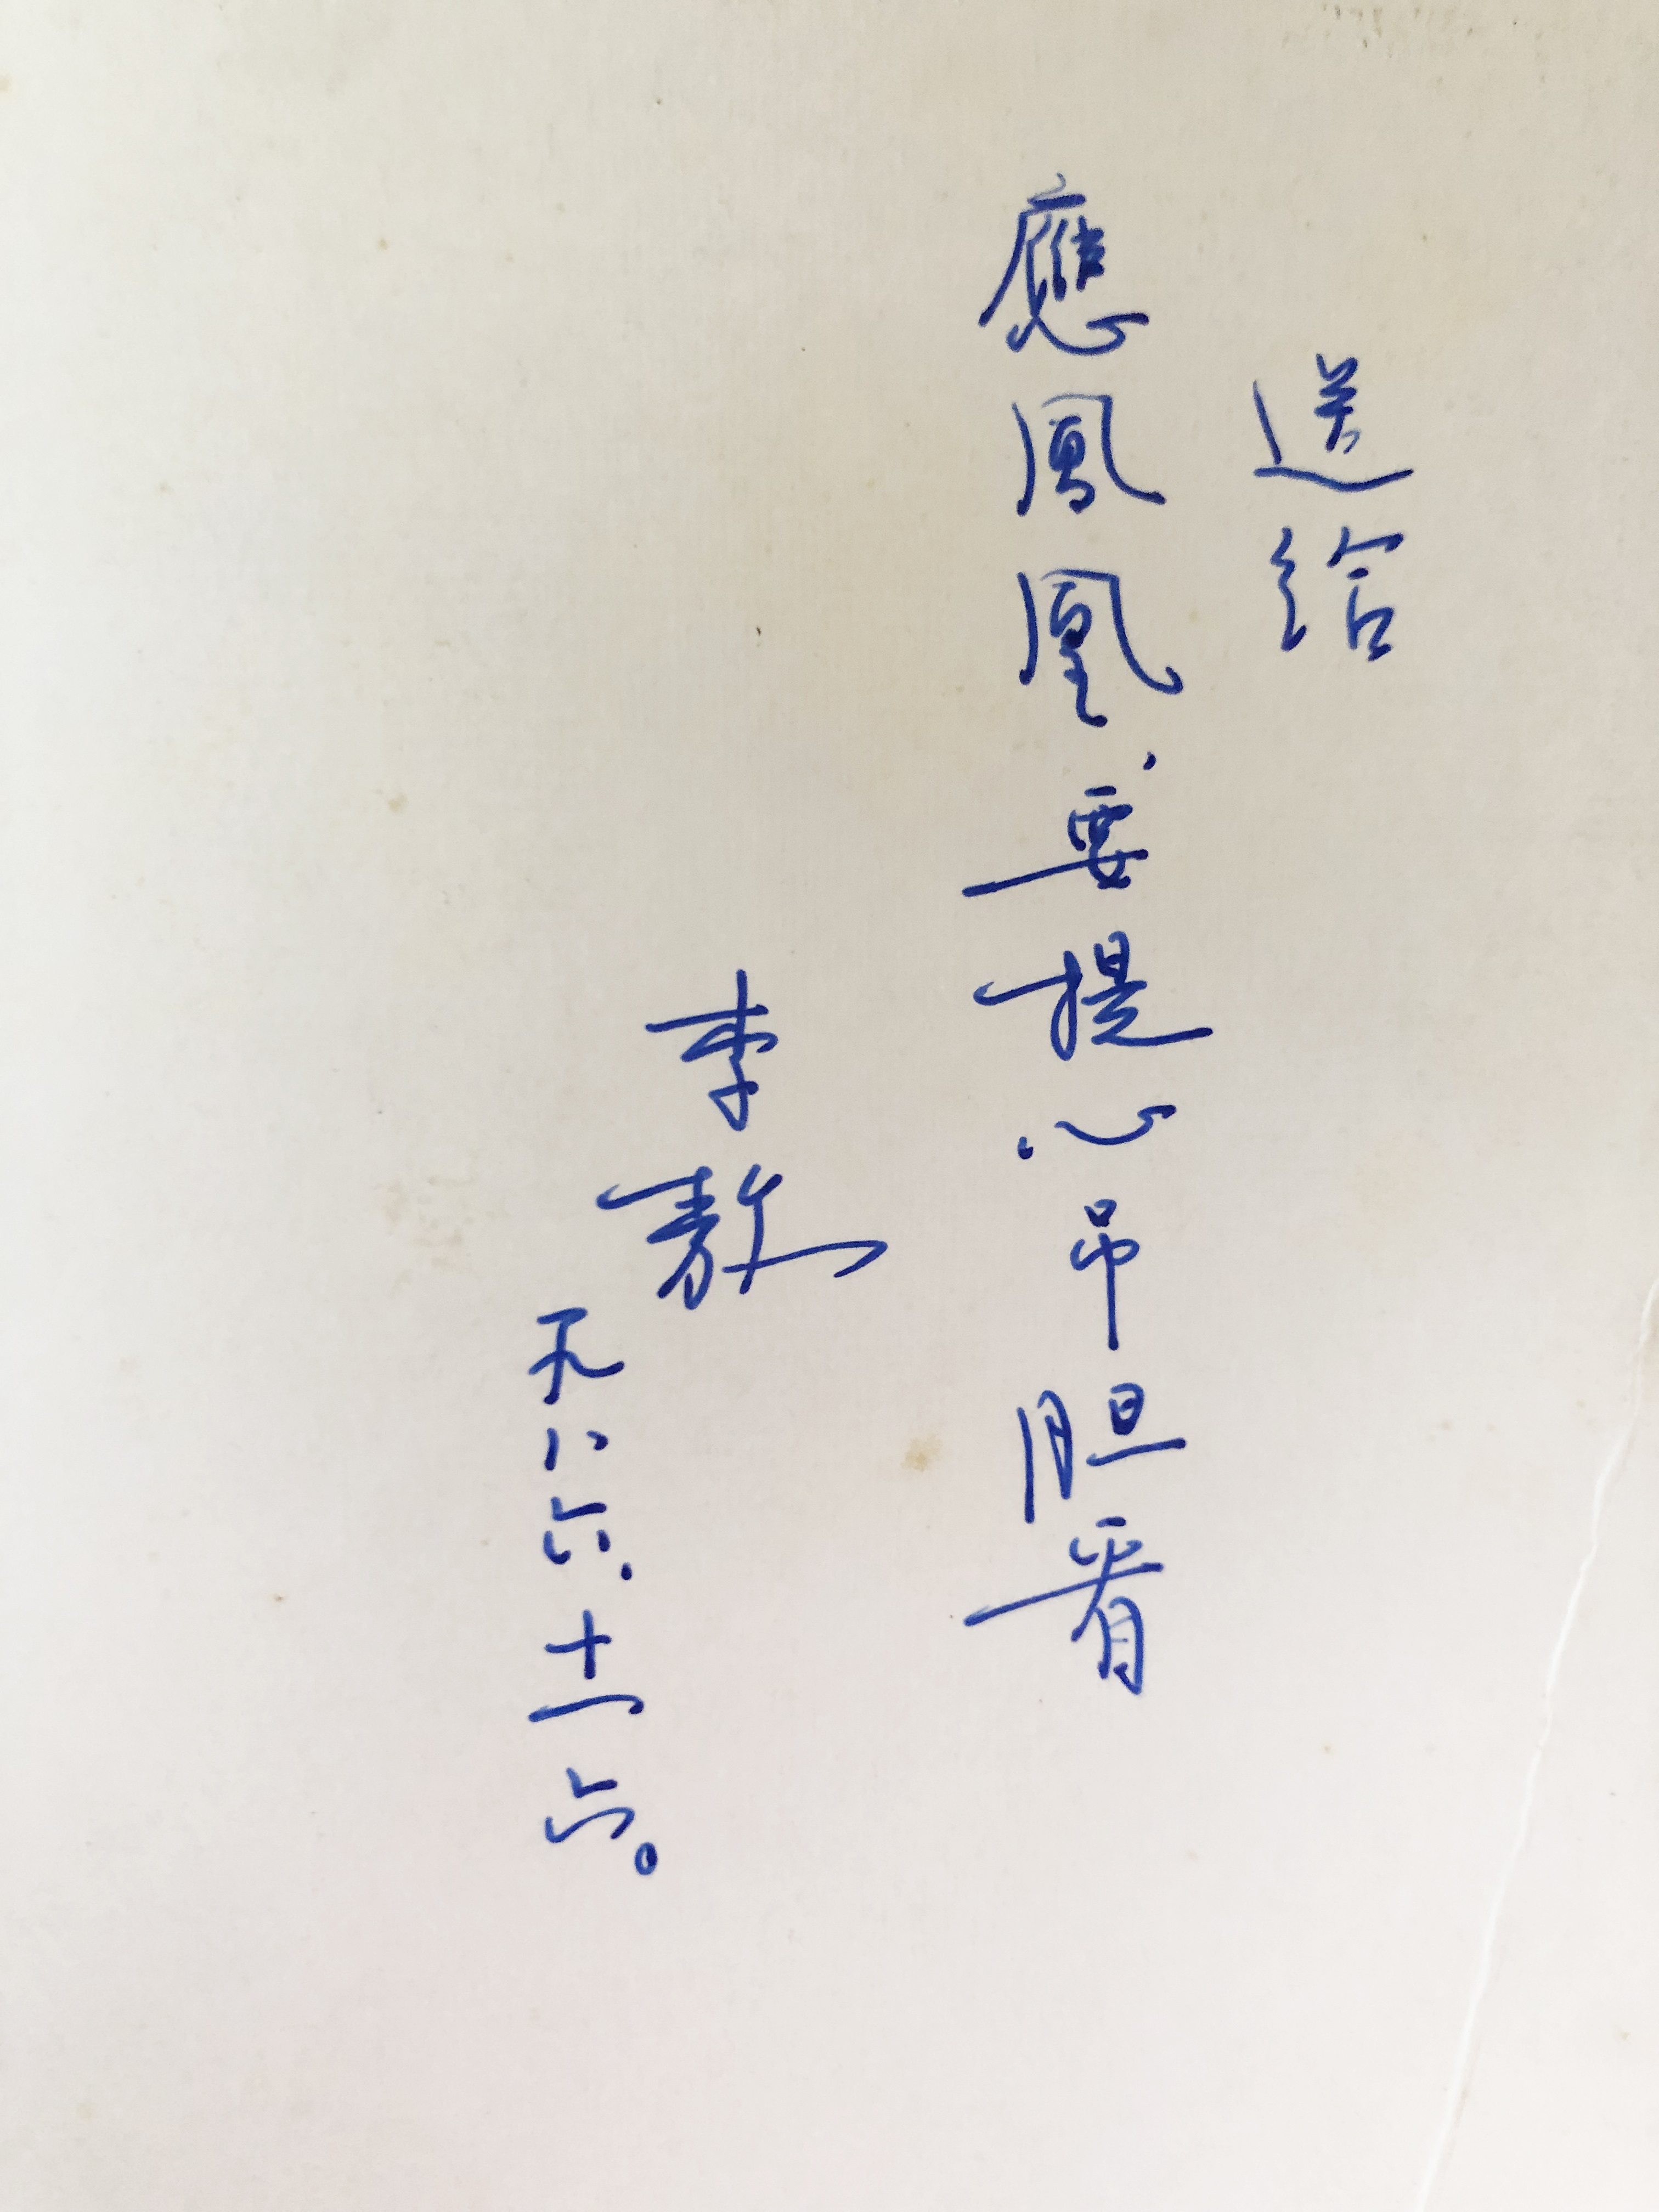 送給
應鳳凰、要提心吊胆看
李敖
一九八六、十一、六。